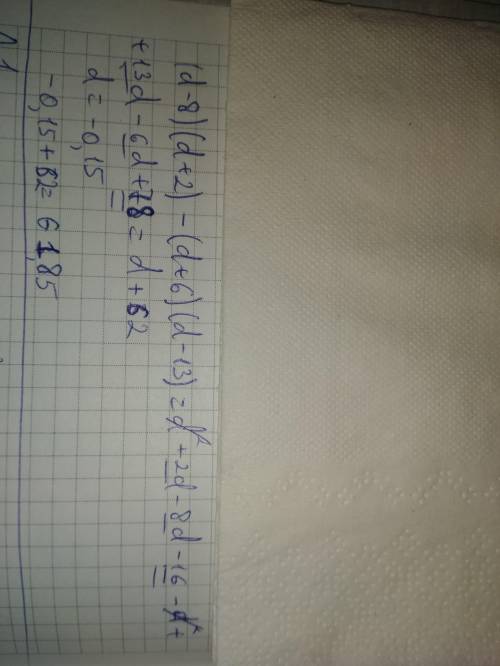 (d-8)(d+2)-(d+6)(d-13)=d²+2d-8d-16-d²+
+13d-6d+78=d+62
d=-0,15
-0,15+62=61,85